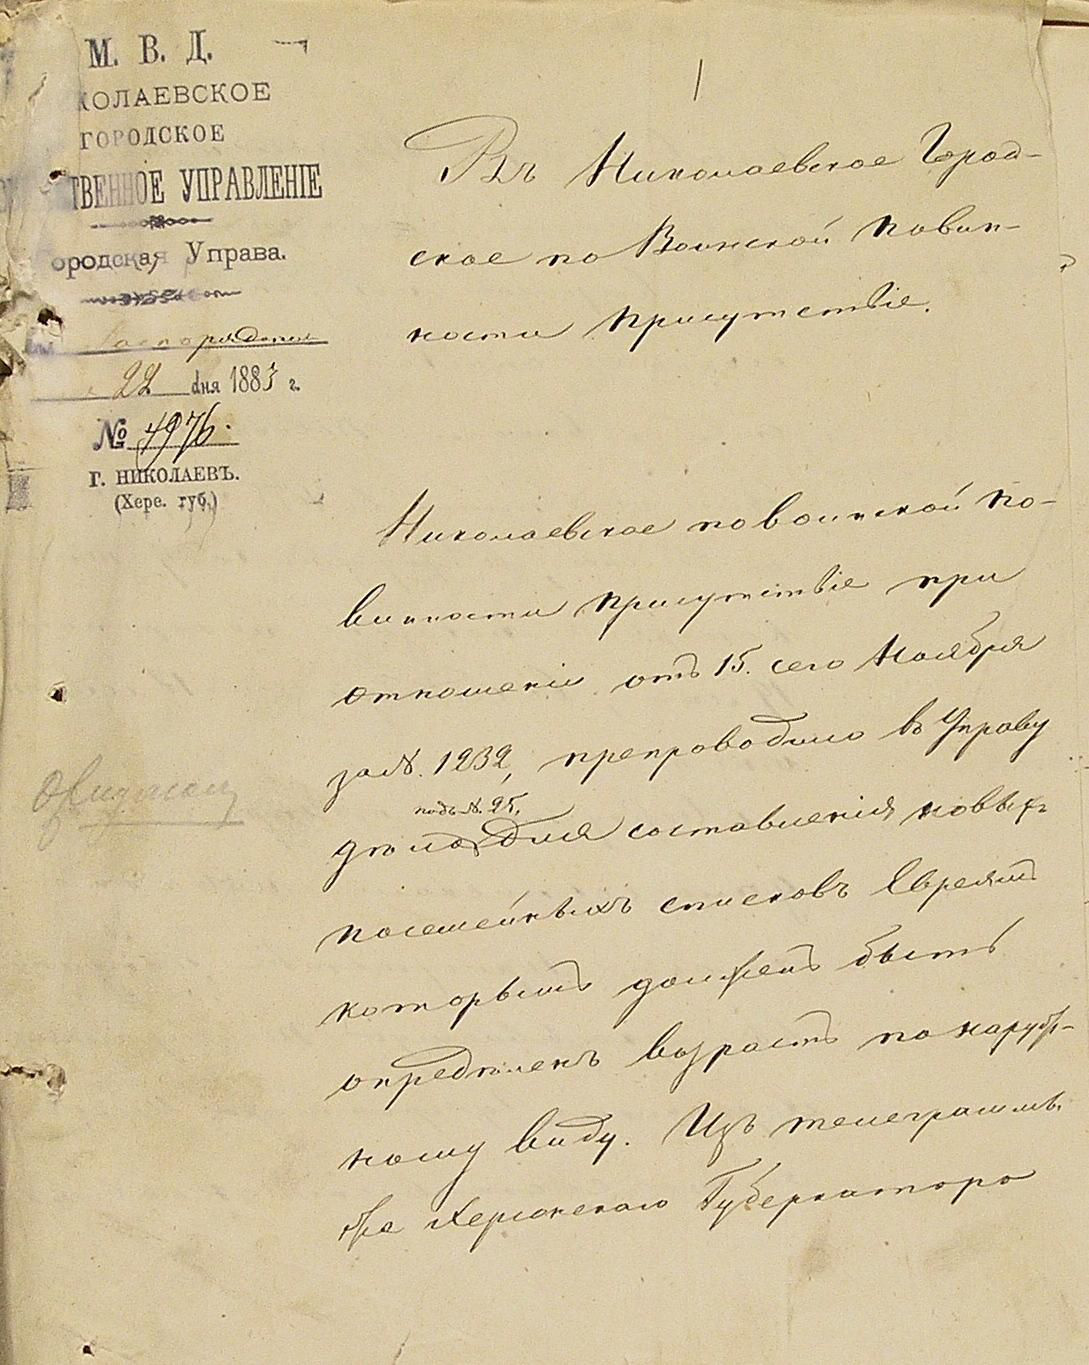 М. В. Д.
КОЛАЕВСКОЕ
ГОРОДСКОЕ
ТВЕННОЕ УПРАВЛЕНІЕ
ородская Управа.
22 дня 1883 г.
№ 4976.
Г. НИКОЛАЕВЪ.
(Херс. губ.)
1
Въ Николаевское Город-
ское по Воинской повин-
ности Присутствіе.
Николаевское по воинской по-
винности Присутствіе при
отношеніи отъ 15. сего Ноября
за №. 1232, препроводило въ Управу
подъ №. 25,
дѣло для составленія новыхъ
посемейныхъ списковъ Евреямъ
которымъ долженъ быть
опредѣленъ возрастъ по наруж-
ному виду. Изъ телеграммъ
же Херсонскаго Губернатора